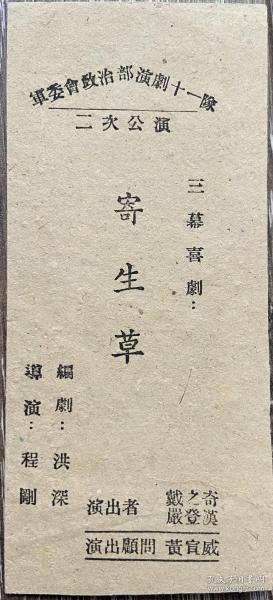 軍委會政治部演劇十一隊
二次公演
三幕喜劇：
寄生草
編劇：洪深
導演：程剛
演出者 戴之奇
嚴登漢
演出顧問 黃宣威